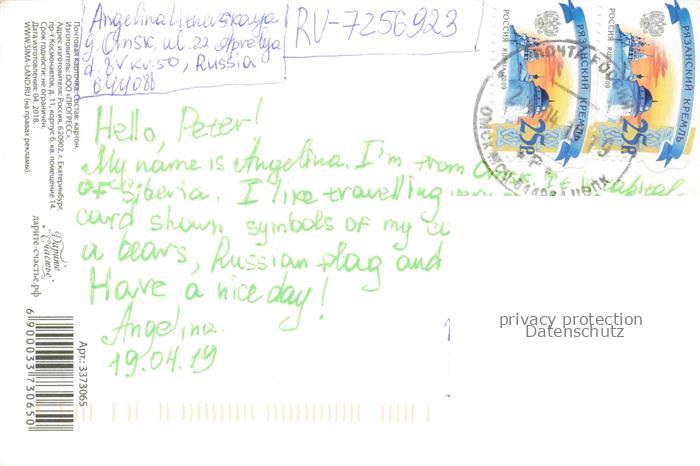 Angelina Litnevskaya
g. Omsk, ul. 22 Aprelya
d. 8V kv. 50, Russia
644088
RV-7256923
РЯЗАНСКИЙ КРЕМЛЬ
РОССИЯ RUSSIA 2009
25Р
РЯЗАНСКИЙ КРЕМЛЬ
РОССИЯ RUSSIA 2009
25Р
ПОЧТА РОССИИ
ОМСК
Hello, Peter!
My name is Angelina. I'm from Omsk. It's capital
of Siberia. I like travelling very
card shown symbols of my co
a bears, Russian flag and
Have a nice day!
Angelina.
19.04.19
privacy protection
Datenschutz
Почтовая карточка. Состав: картон.
Изготовитель: ООО «ПРОГРЕСС».
Адрес изготовителя: Россия, 620902, г. Екатеринбург,
пр-т Космонавтов, д. 11, корпус 6, кв. помещение 14.
Срок годности не ограничен.
Дата изготовления: 04.2018.
WWW.SIMA-LAND.RU (на правах рекламы).
Дарите
Счастье
дарите-счастье.рф
Арт.: 3373065
6 900033 730650